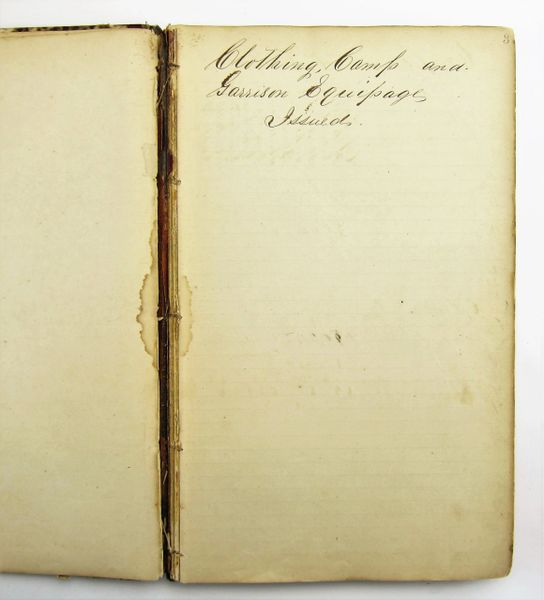 Clothing, Camp and
Garrison Equipage
Issued.
3